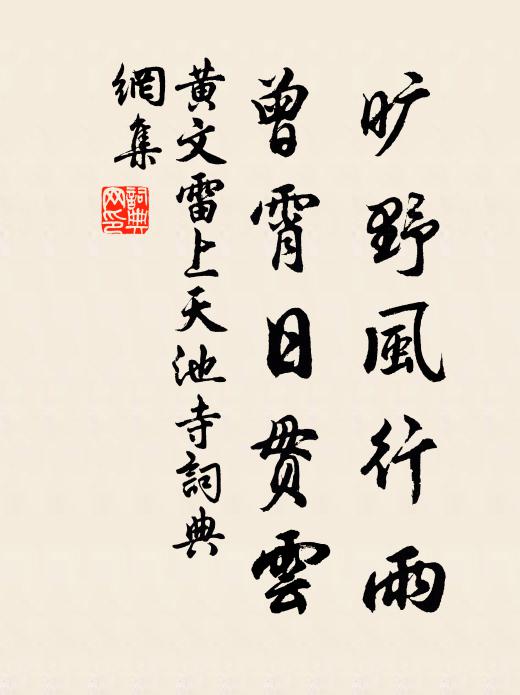 旷野風行雨
曾霄日贯雲
黄文雷上天池寺詞典
網集
詞典网印